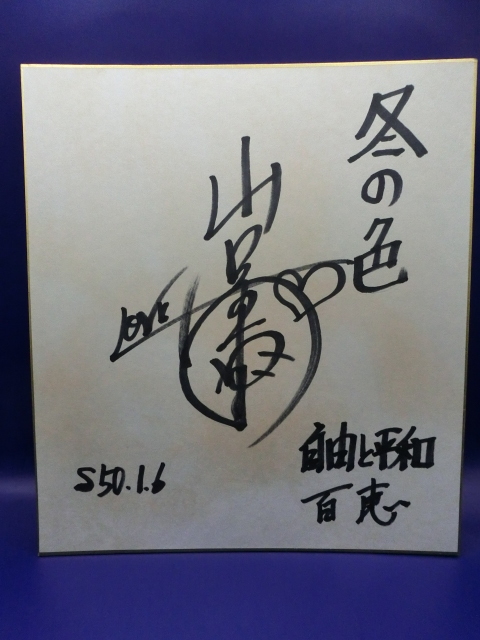 冬の色
山口百恵
love
自由と平和
百恵
S50.1.6